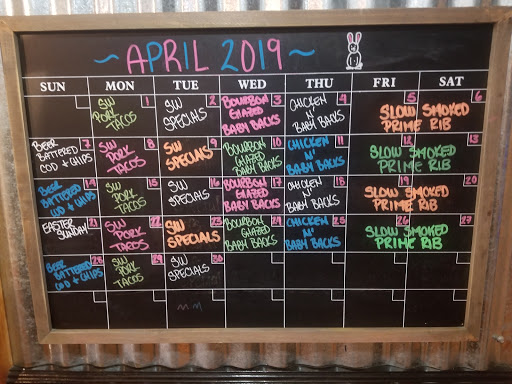 ~APRIL 2019~
SUN MON TUE WED THU FRI SAT
1 2 3 4 5 6
SW PORK TACOS
SW SPECIALS
BOURBON GLAZED BABY BACKS
CHICKEN N' BABY BACKS
SLOW SMOKED PRIME RIB
7 8 9 10 11 12 13
BEER BATTERED COD + CHIPS
SW PORK TACOS
SW SPECIALS
BOURBON GLAZED BABY BACKS
CHICKEN N' BABY BACKS
SLOW SMOKED PRIME RIB
14 15 16 17 18 19 20
BEER BATTERED COD + CHIPS
SW PORK TACOS
SW SPECIALS
BOURBON GLAZED BABY BACKS
CHICKEN N' BABY BACKS
SLOW SMOKED PRIME RIB
21 22 23 24 25 26 27
EASTER SUNDAY
SW PORK TACOS
SW SPECIALS
BOURBON GLAZED BABY BACKS
CHICKEN N' BABY BACKS
SLOW SMOKED PRIME RIB
28 29 30
BEER BATTERED COD + CHIPS
SW PORK TACOS
SW SPECIALS